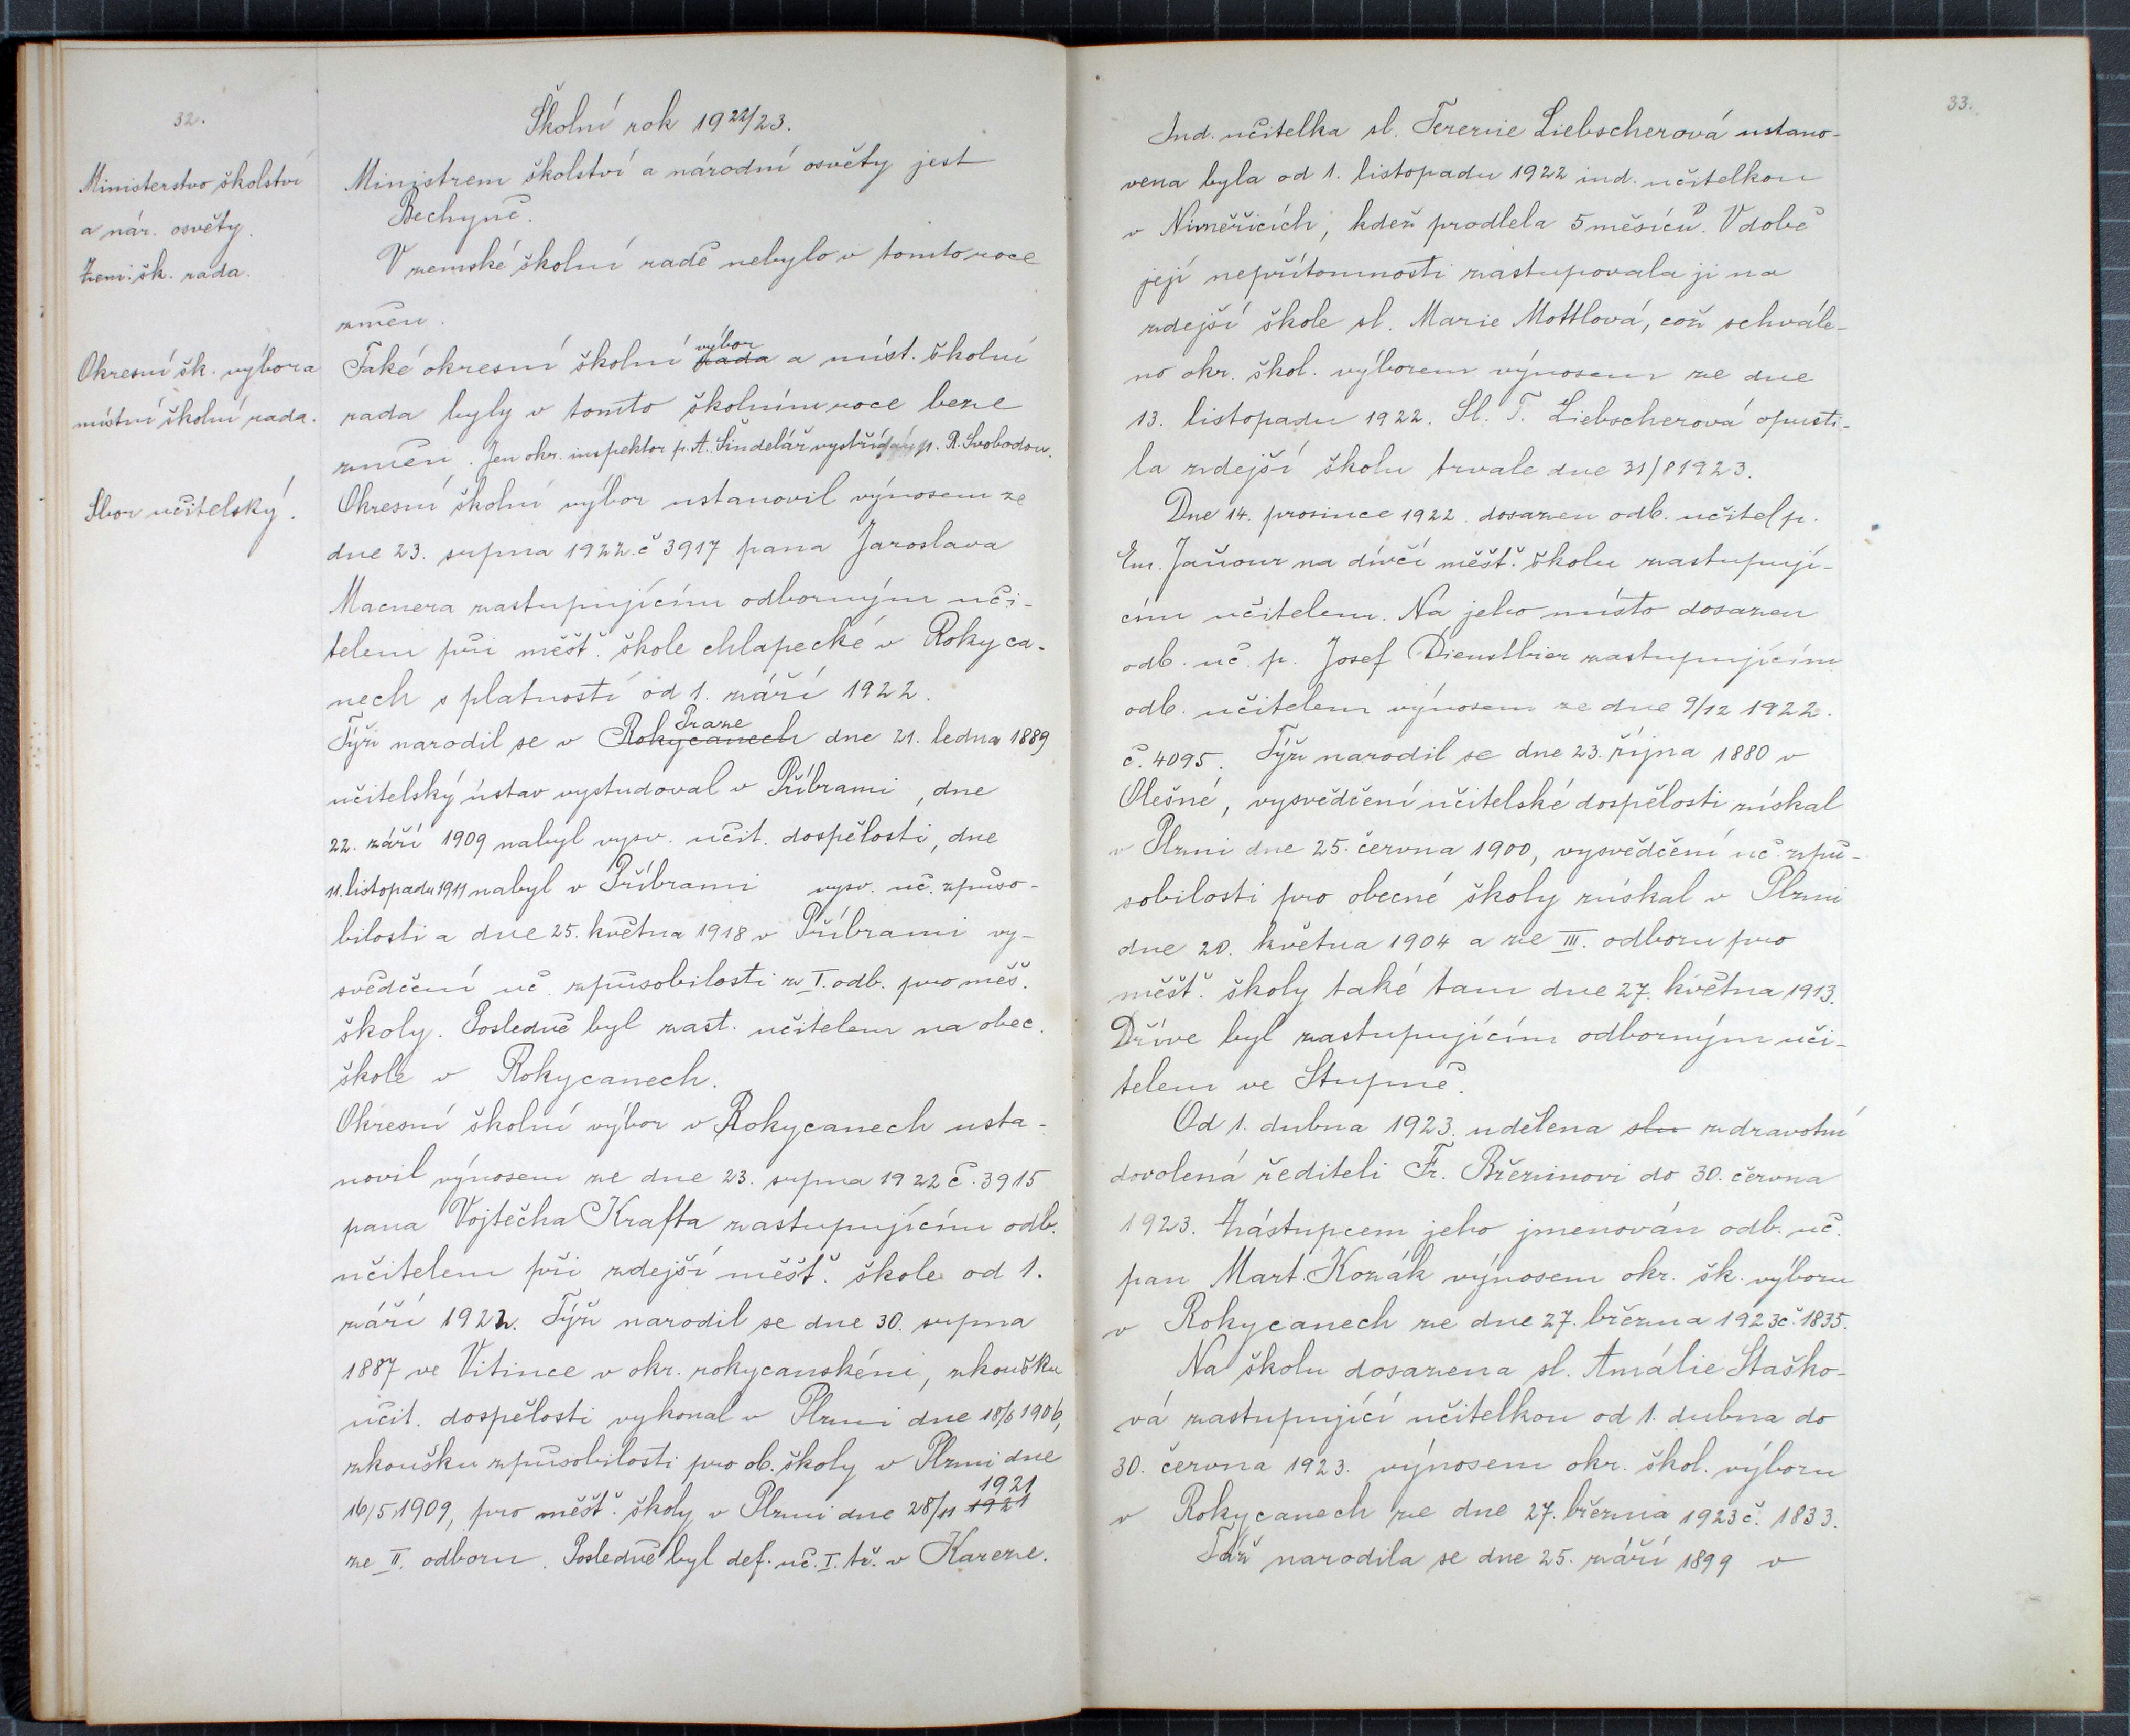 32.
Školní rok 1922/23.
Ministerstvo školství
a nár. osvěty.
Zem. šk. rada.
Ministrem školství a národní osvěty jest
Bechyně.
V zemské školní radě nebylo v tomto roce
změn.
Okresní šk. výbor a
místní školní rada.
Také okresní školní rada výbor a míst. školní
rada byly v tomto školním roce beze
změn. Jen okr. inspektor p. A. Šindelář vystřídán p. R. Svobodou.
Sbor učitelský.
Okresní školní výbor ustanovil výnosem ze
dne 23. srpna 1922 č 3917 pana Jaroslava
Macnera zastupujícím odborným uči-
telem při měšť. škole chlapecké v Rokyca-
nech s platností od 1. září 1922.
Týž narodil se v Rokycanech Praze dne 21. ledna 1889
učitelský ústav vystudoval v Příbrami, dne
22. září 1909 nabyl vysv. učit. dospělosti, dne
11. listopadu 1911 nabyl v Příbrami vysv. uč. způso-
bilosti a dne 25. května 1918 v Příbrami vy-
svědčení uč. způsobilosti z I. odb. pro měš.
školy. Posledně byl zast. učitelem na obec.
škole v Rokycanech.
Okresní školní výbor v Rokycanech usta-
novil výnosem ze dne 23. srpna 1922 č. 3915
pana Vojtěcha Krafta zastupujícím odb.
učitelem při zdejší měšť. škole od 1.
září 1922. Týž narodil se dne 30. srpna
1887 ve Vitince v okr. rokycanském, zkoušku
učit. dospělosti vykonal v Plzni dne 18/6 1906,
zkoušku způsobilosti pro ob. školy v Plzni dne
16/5 1909, pro měšť. školy v Plzni dne 28/11 1921 1921
ze II. odboru. Posledně byl def. uč. I. tř. v Kareze.
33.
Ind. učitelka sl. Terezie Liebscherová ustano-
vena byla od 1. listopadu 1922 ind. učitelkou
v Niměřicích, kdež prodlela 5 měsíců. V době
její nepřítomnosti zastupovala ji na
zdejší škole sl. Marie Mottlová, což schvále-
no okr. škol. výborem výnosem ze dne
13. listopadu 1922. Sl. T. Liebscherová opusti-
la zdejší školu trvale dne 31/8 1923.
Dne 14. prosince 1922. dosazen odb. učitel p.
Em. Jaňour na dívčí měšť. školu zastupují-
cím učitelem. Na jeho místo dosazen
odb. uč. p. Josef Dienstbier zastupujícím
odb. učitelem výnosem ze dne 9/12 1922.
č. 4095. Týž narodil se dne 23. října 1880 v
Olešné, vysvědčení učitelské dospělosti získal
v Plzni dne 25. června 1900, vysvědčení uč. způ-
sobilosti pro obecné školy získal v Plzni
dne 20. května 1904 a ze III. odboru pro
měšť. školy také tam dne 27. května 1913.
Dříve byl zastupujícím odborným uči-
telem ve Stupně.
Od 1. dubna 1923. udělena slu zdravotní
dovolená řediteli Fr. Březinovi do 30. června
1923. Zástupcem jeho jmenován odb. uč.
pan Mart. Kozák výnosem okr. šk. výboru
v Rokycanech ze dne 27. března 1923 č. 1835.
Na školu dosazena sl. Amálie Staško-
vá zastupující učitelkou od 1. dubna do
30. června 1923. výnosem okr. škol. výboru
v Rokycanech ze dne 27. března 1923 č. 1833.
Táž narodila se dne 25. září 1899 v